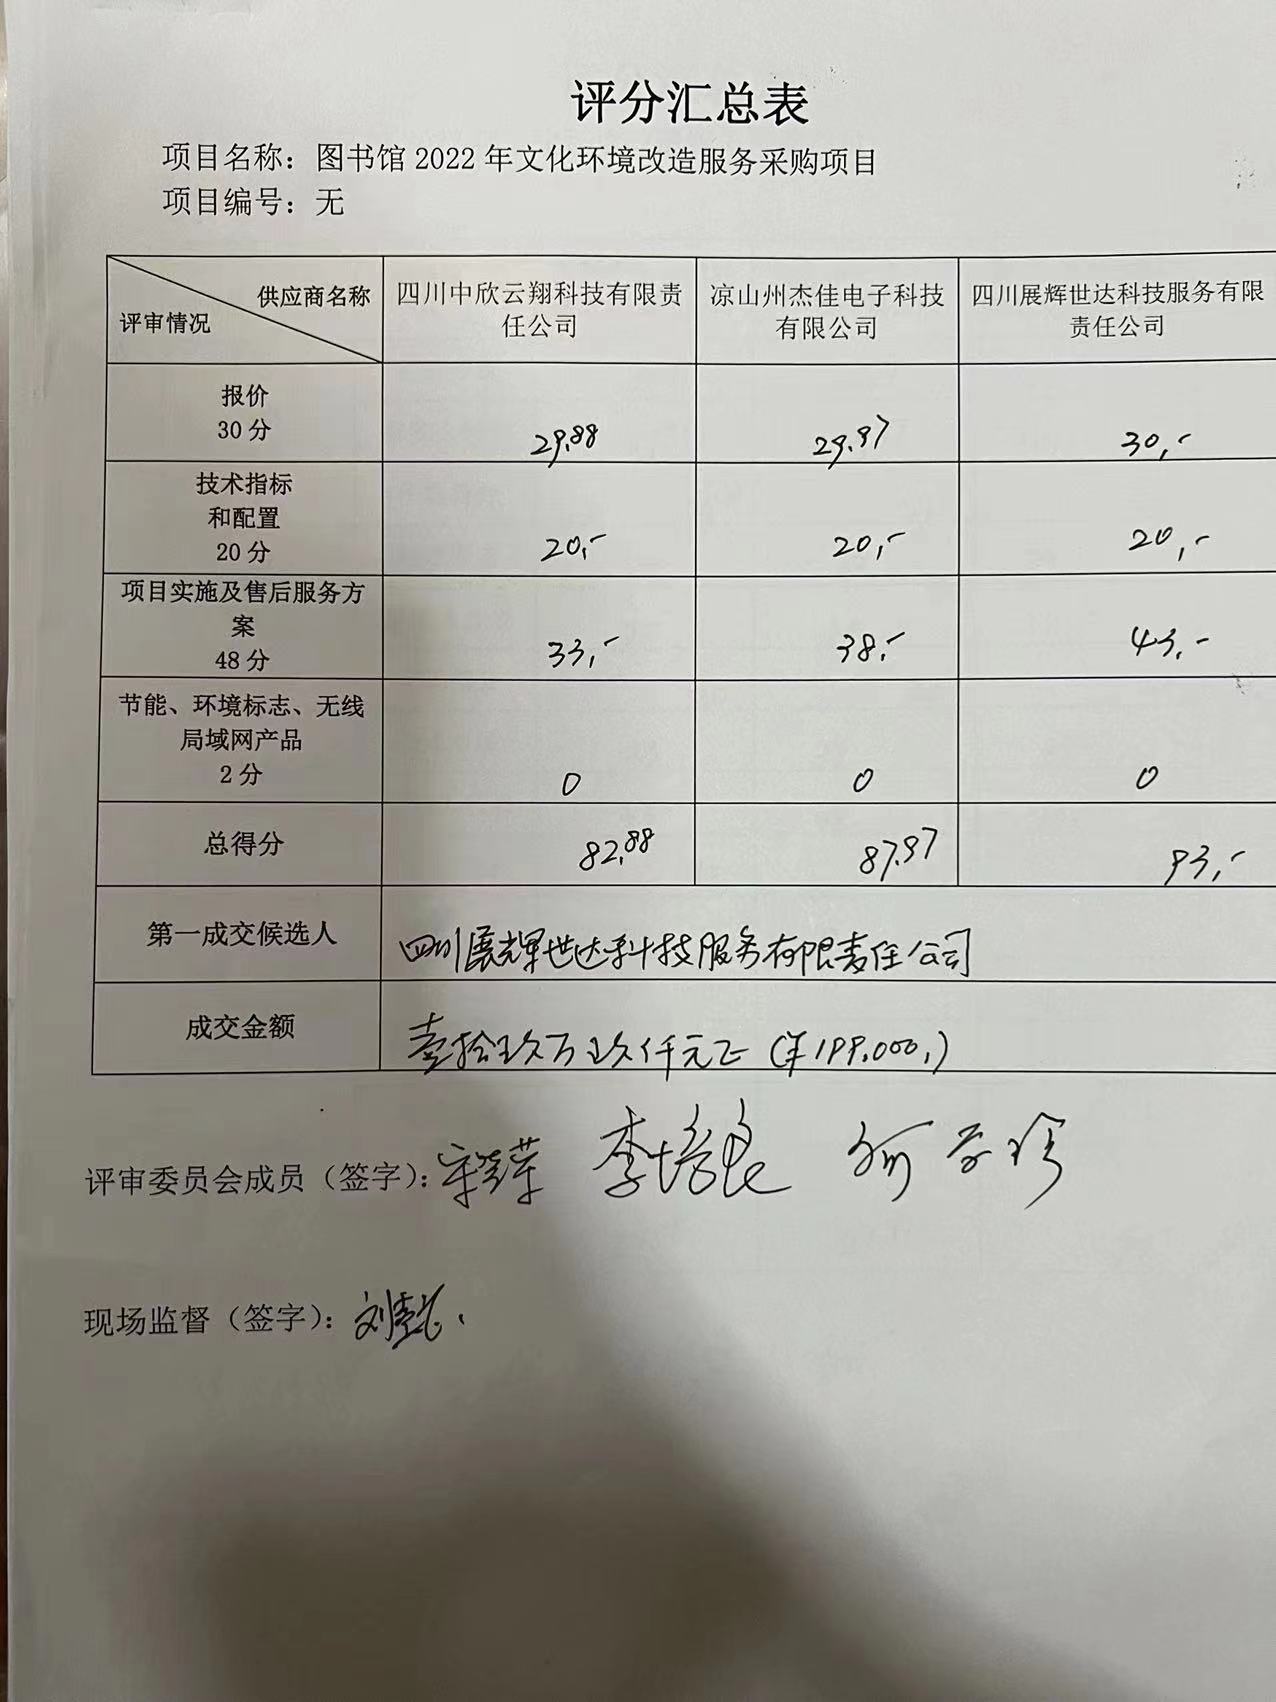 评分汇总表
项目名称：图书馆 2022 年文化环境改造服务采购项目
项目编号：无
供应商名称
评审情况
四川中欣云翔科技有限责
任公司
凉山州杰佳电子科技
有限公司
四川展辉世达科技服务有限
责任公司
报价
30 分
29.88
29.97
30,-
技术指标
和配置
20 分
20,-
20,-
20,-
项目实施及售后服务方
案
48 分
33,-
38,-
43,-
节能、环境标志、无线
局域网产品
2 分
0
0
0
总得分
82.88
87.97
93,-
第一成交候选人
四川展辉世达科技服务有限责任公司
成交金额
壹拾玖万玖仟元正（￥199,000,）
评审委员会成员（签字）： 李培良
现场监督（签字）：